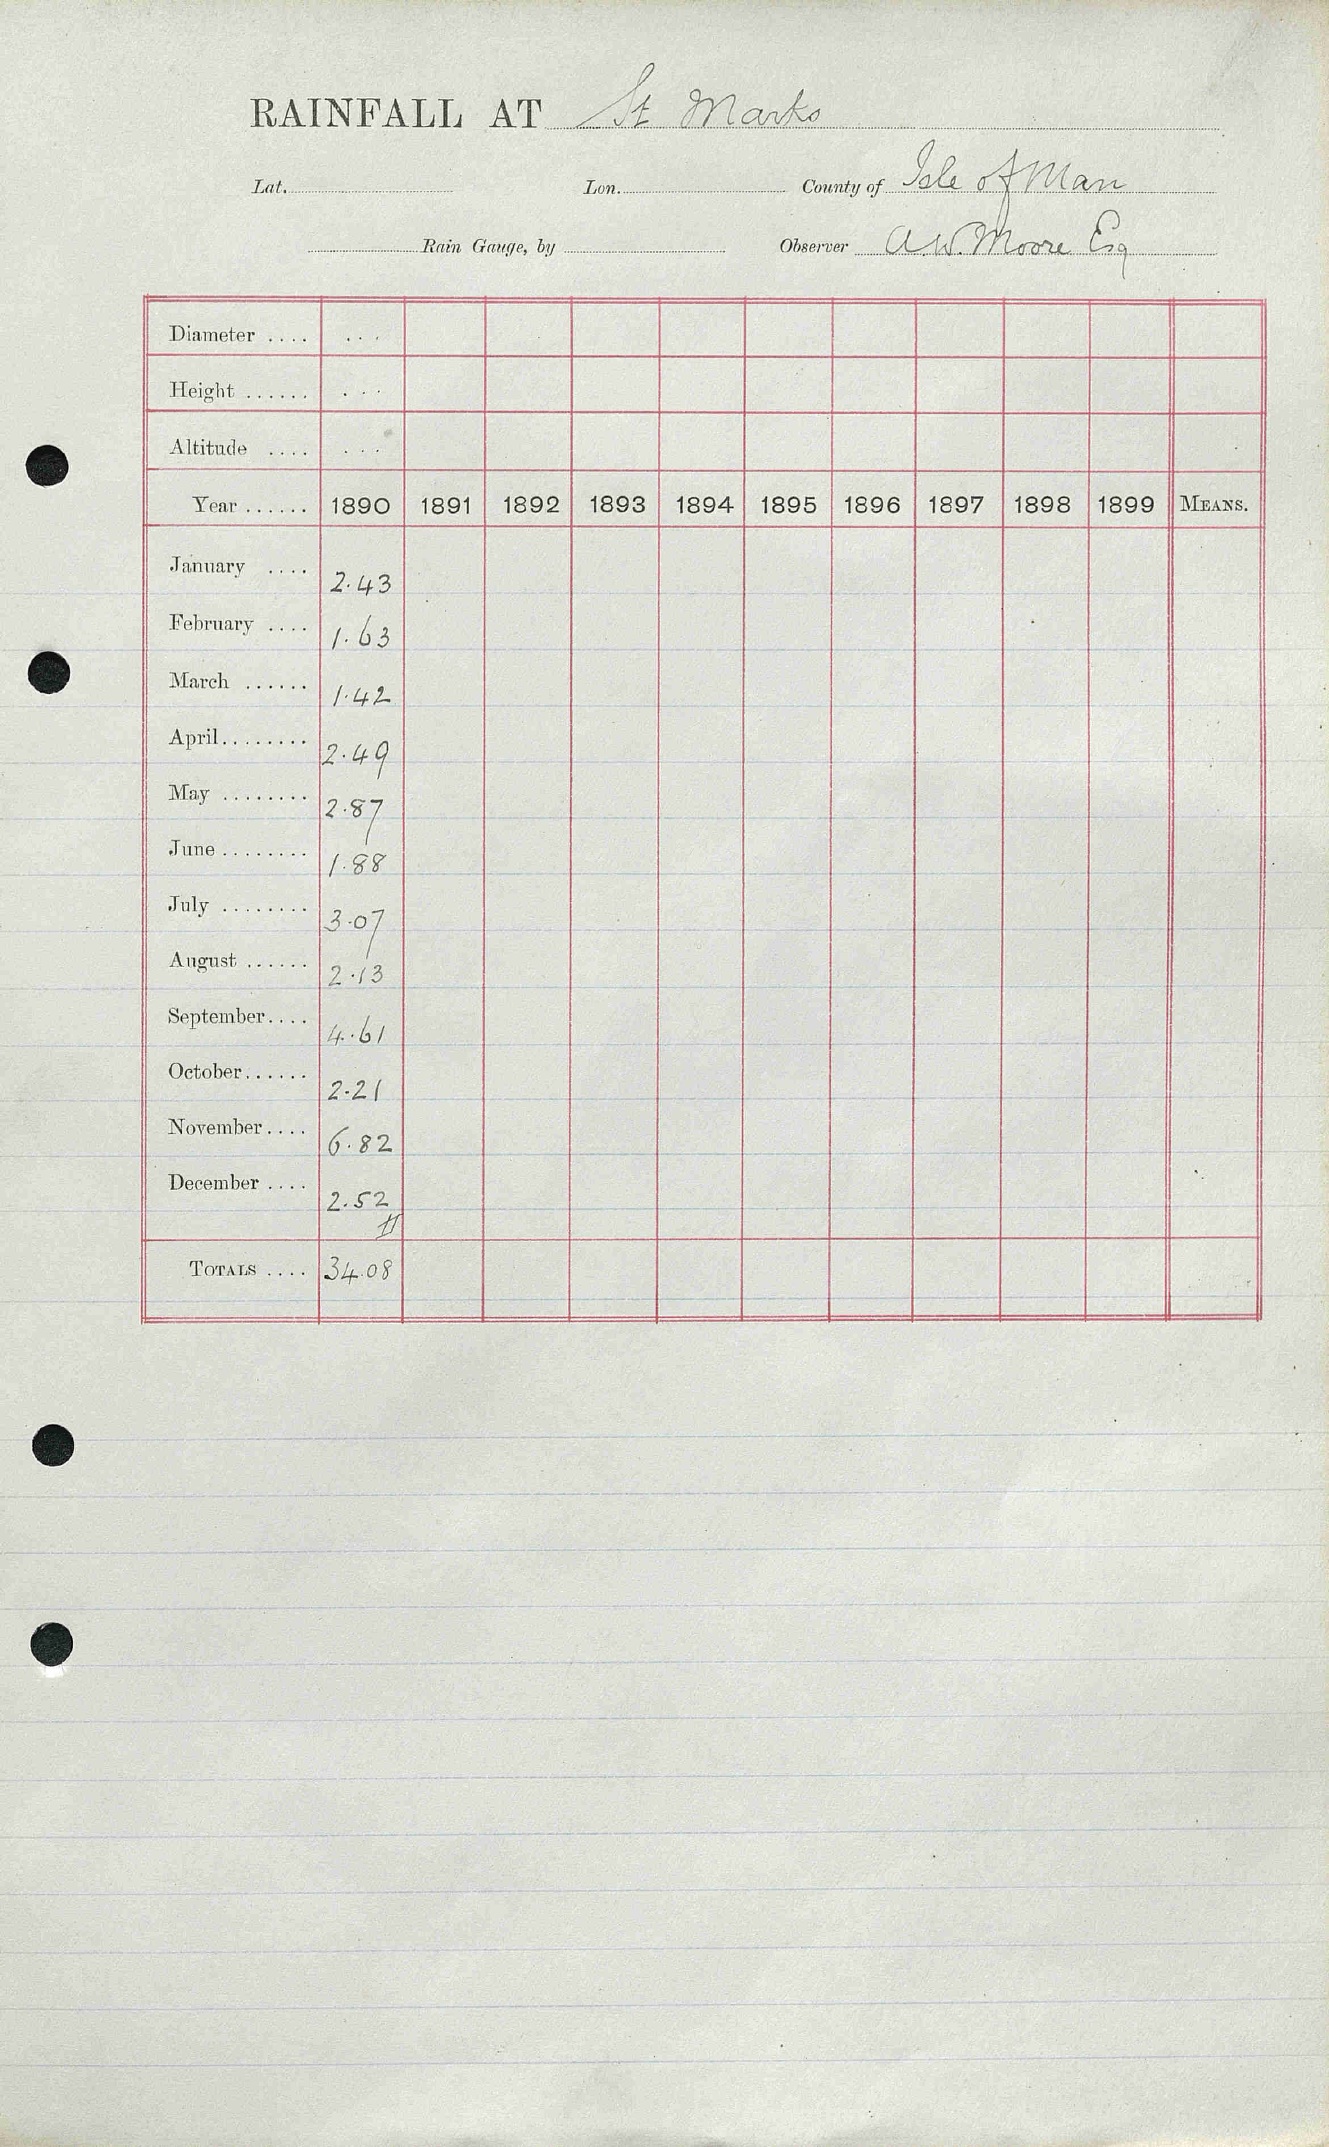 RAINFALL AT St Marks
Lat. Lon. County of Isle of Man
Rain Gauge, by Observer A.W. Moore Esq
Diameter .... ...
Height ...... ...
Altitude .... ...
Year ...... 1890 1891 1892 1893 1894 1895 1896 1897 1898 1899 MEANS.
January .... 2.43
February .... 1.63
March ...... 1.42
April........ 2.49
May ........ 2.87
June ........ 1.88
July ........ 3.07
August ...... 2.13
September.... 4.61
October...... 2.21
November.... 6.82
December .... 2.52
TOTALS .... 34.08